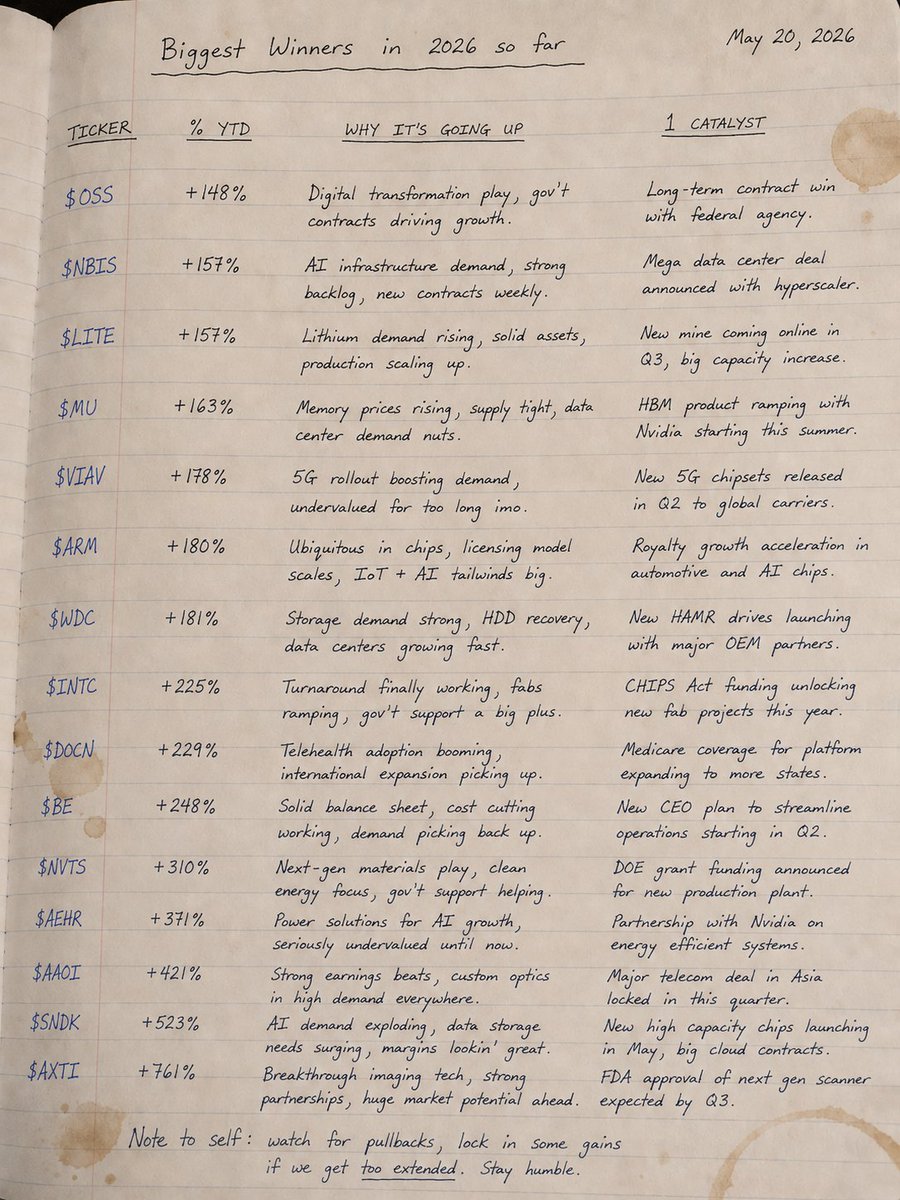 Biggest Winners in 2026 so far
May 20, 2026
TICKER % YTD WHY IT'S GOING UP 1 CATALYST
$OSS +148% Digital transformation play, gov't Long-term contract win
contracts driving growth. with federal agency.
$NBIS +157% AI infrastructure demand, strong Mega data center deal
backlog, new contracts weekly. announced with hyperscaler.
$LITE +157% Lithium demand rising, solid assets, New mine coming online in
production scaling up. Q3, big capacity increase.
$MU +163% Memory prices rising, supply tight, data HBM product ramping with
center demand nuts. Nvidia starting this summer.
$VIAV +178% 5G rollout boosting demand, New 5G chipsets released
undervalued for too long imo. in Q2 to global carriers.
$ARM +180% Ubiquitous in chips, licensing model Royalty growth acceleration in
scales, IoT + AI tailwinds big. automotive and AI chips.
$WDC +181% Storage demand strong, HDD recovery, New HAMR drives launching
data centers growing fast. with major OEM partners.
$INTC +225% Turnaround finally working, fabs CHIPS Act funding unlocking
ramping, gov't support a big plus. new fab projects this year.
$DOCN +229% Telehealth adoption booming, Medicare coverage for platform
international expansion picking up. expanding to more states.
$BE +248% Solid balance sheet, cost cutting New CEO plan to streamline
working, demand picking back up. operations starting in Q2.
$NVTS +310% Next-gen materials play, clean DOE grant funding announced
energy focus, gov't support helping. for new production plant.
$AEHR +371% Power solutions for AI growth, Partnership with Nvidia on
seriously undervalued until now. energy efficient systems.
$AAOI +421% Strong earnings beats, custom optics Major telecom deal in Asia
in high demand everywhere. locked in this quarter.
$SNDK +523% AI demand exploding, data storage New high capacity chips launching
needs surging, margins lookin' great. in May, big cloud contracts.
$AXTI +761% Breakthrough imaging tech, strong FDA approval of next gen scanner
partnerships, huge market potential ahead. expected by Q3.
Note to self: watch for pullbacks, lock in some gains
if we get too extended. Stay humble.